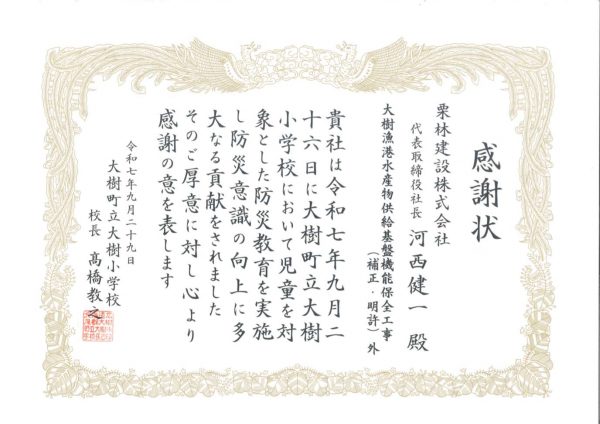 感謝状
栗林建設株式会社
代表取締役社長 河西健一 殿
大樹漁港水産物供給基盤機能保全工事
(補正・明許)外
貴社は令和七年九月二
十六日に大樹町立大樹
小学校において児童を対
象とした防災教育を実施
し防災意識の向上に多
大なる貢献をされました
そのご厚意に対し心より
感謝の意を表します
令和七年九月二十九日
大樹町立大樹小学校
校長 髙橋教之